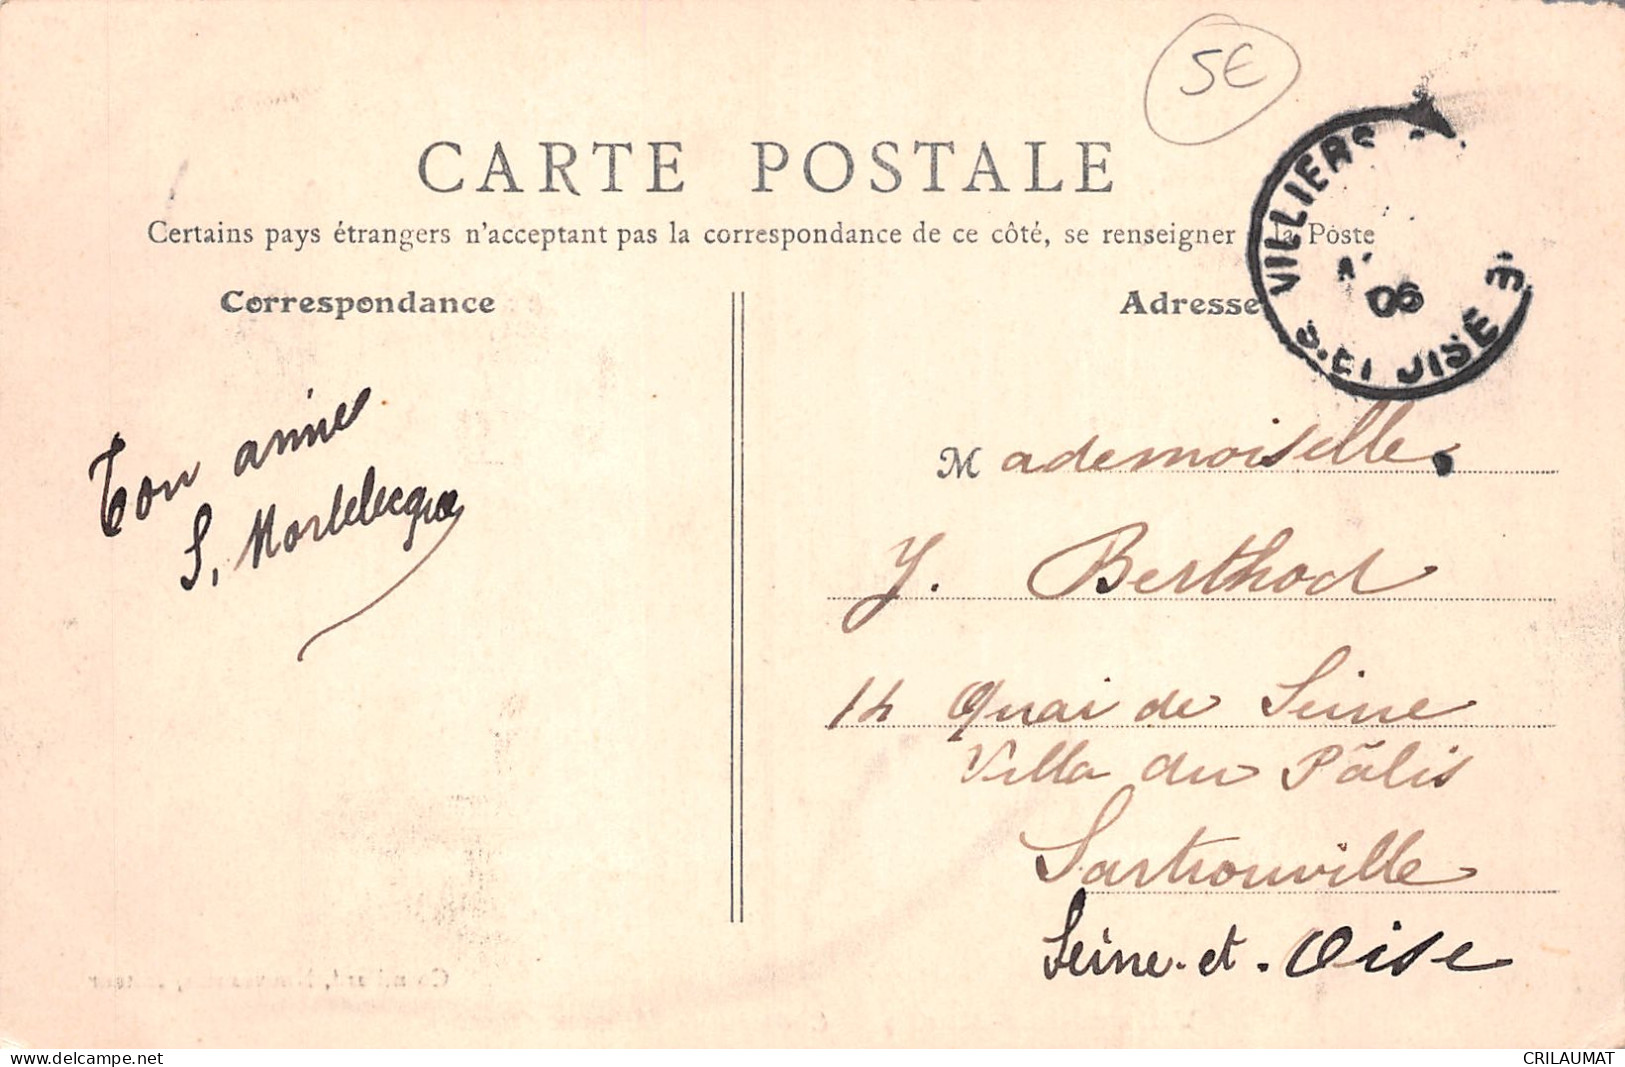 5€
CARTE POSTALE
Certains pays étrangers n'acceptant pas la correspondance de ce côté, se renseigner à la Poste
VILLIERS
06
S.ET OISE
Correspondance
Adresse
Ton amie
S. Mortelecque
Mademoiselle
Y. Berthod
14 Quai de Seine
Villa du Pâlis
Sartrouville
Seine-et-Oise
www.delcampe.net
CRILAUMAT